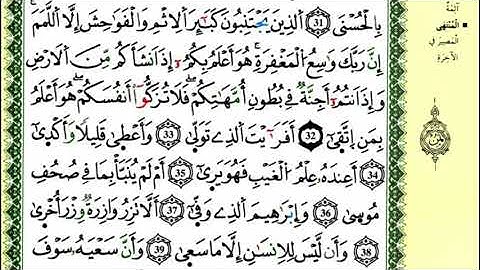 بِالْحُسْنَى 31 الذِينَ يَجْتَنِبُونَ كَبَٰٓئِرَ الِاثْمِ وَالْفَوَٰحِشَ إِلَّا اللَّمَمَ
إِنَّ رَبَّكَ وَٰسِعُ الْمَغْفِرَةِ هُوَ أَعْلَمُ بِكُمُۥٓ إِذَ انشَأَكُم مِّنَ الَارْضِ
وَإِذَ انتُمُۥٓ أَجِنَّةٌ فِي بُطُونِ أُمَّهَٰتِكُمْ فَلَا تُزَكُّوٓا أَنفُسَكُمْ هُوَ أَعْلَمُ
بِمَنِ اتَّقَىٰٓ 32 أَفَرَٰٓيْتَ الذِے تَوَلَّىٰ 33 وَأَعْطَىٰ قَلِيلًا وَأَكْدَىٰٓ
34 أَعِندَهُۥ عِلْمُ الْغَيْبِ فَهُوَ يَرَىٰٓ 35 أَمْ لَمْ يُنَبَّأْ بِمَا فِي صُحُفِ
مُوسَىٰ 36 وَإِبْرَٰهِيمَ الذِے وَفَّىٰٓ 37 أَلَّا تَزِرُ وَازِرَةٌ وِزْرَ أُخْرَىٰ
38 وَأَن لَّيْسَ لِلِانسَٰنِ إِلَّا مَا سَعَىٰ 39 وَأَنَّ سَعْيَهُۥ سَوْفَ
آثمة
الْمُنتَهَى
المصير في
الآخرة